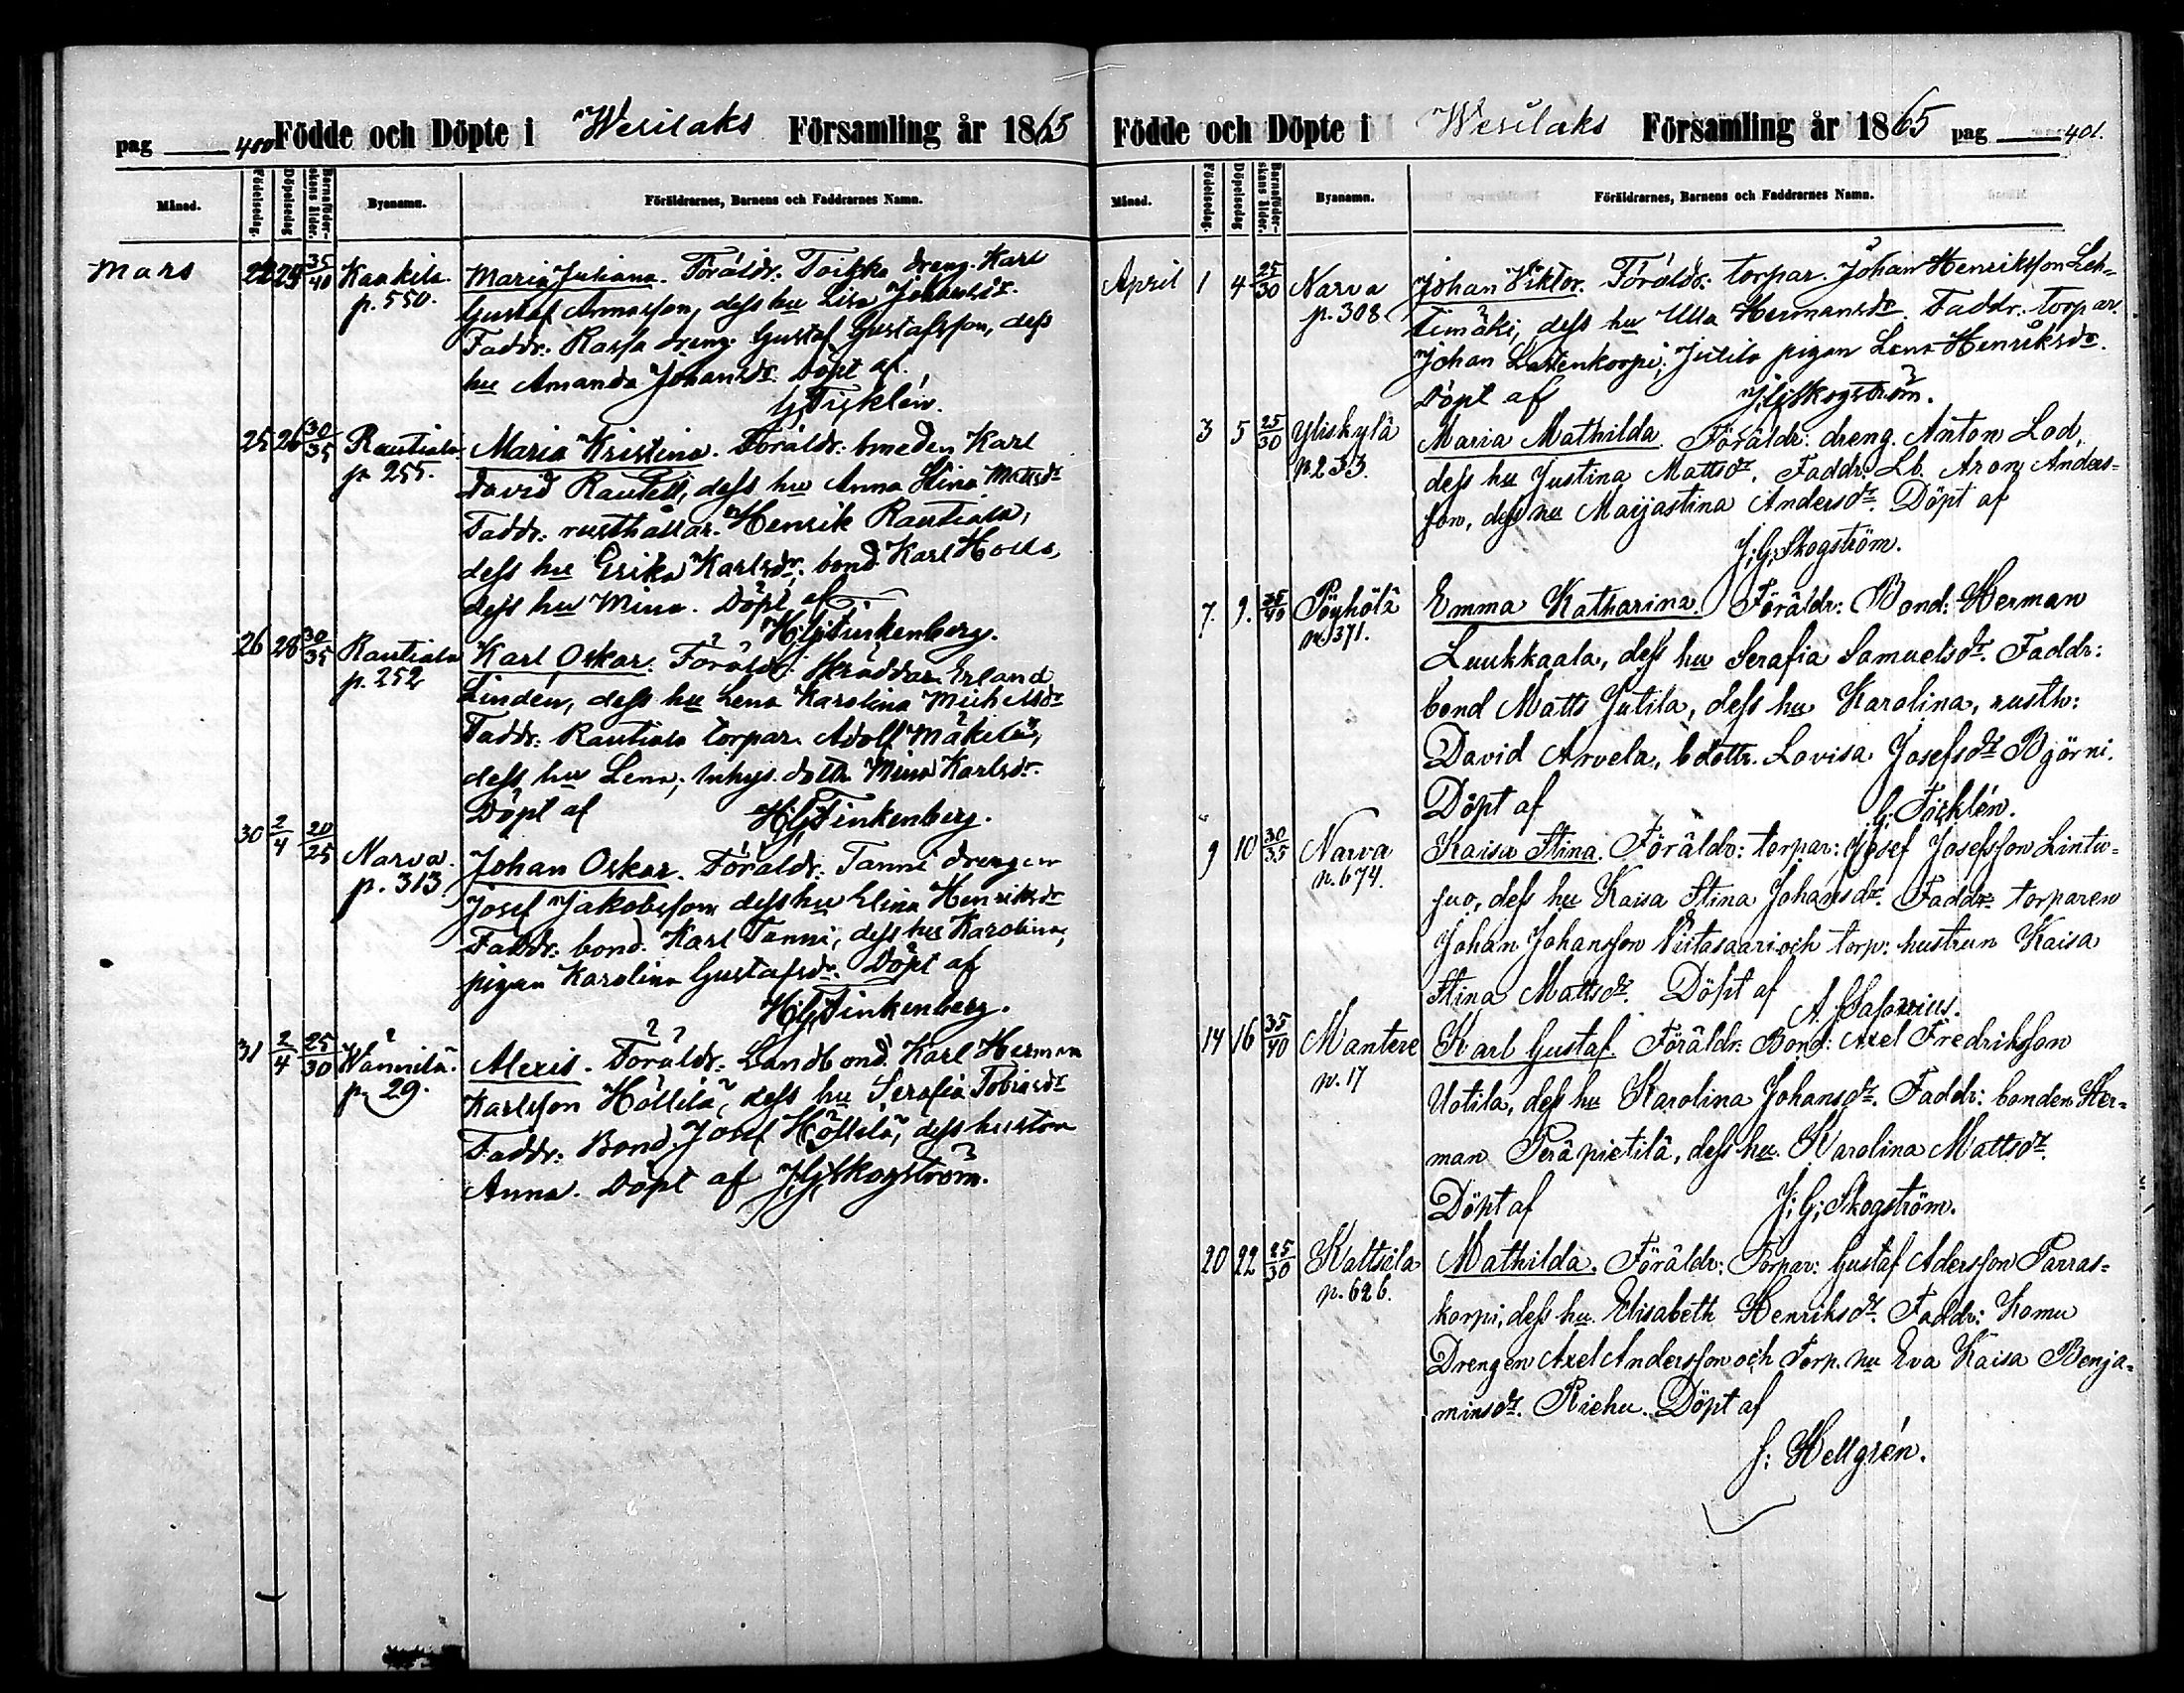 pag 400 Födde och Döpte i Wesilaks Församling år 1865
Månad. Födelsedag. Döpelsedag Barnaföderskans ålder. Byanamn. Föräldrarnes, Barnens och Faddrarnes Namn.
Mars 22 25 35/40 Kaakila. p. 550. Maria Juliana. Föräldr. Toikka dreng. Karl
Gustaf Annasson, dess hu Lisa Johansdr.
Faddr. Rassa dreng. Gustaf Gustafsson, dess
hu Amanda Johansdr. Döpt af
G; Ticklén.
25 26 30/35 Rautiala p. 255. Maria Kristina. Föräldr: bmeden Karl
David Rautell, dess hu Anna Stina Mattsdr
Faddr. rusthållar. Henrik Rautiala,
dess hu Erika Karlsdr; bond. Karl Holla,
dess hu Mina. Döpt af
H; G; Finkenberg.
26 28 30/35 Rautiala p. 252 Karl Oskar. Föräldr: Skräddar. Erland
Lindén, dess hu Lena Karolina Michelsdr
Faddr: Rautiala torpar. Adolf Mäkilä,
dess hu Lena; inhys. dottr Mina Karlsdr.
Döpt af H; G; Finkenberg.
30 2/4 20/25 Narva. p. 313 Johan Oskar. Föräldr: Tanni drengen
Josef Jakobsson dess hu Elina Henriksdr
Faddr: bond. Karl Tanni, dess hu Karolina,
pigan Karolina Gustafsdr. Döpt af
H; G; Finkenberg.
31 2/4 25/30 Wännilä. p. 29. Alexis. Föräldr: Landbond. Karl Herman
Karlsson Höllilä, dess hu Serafia Tobiasdr
Faddr: Bond. Josef Höllilä, dess hustru
Anna. Döpt af J; G; Skogström.
Födde och Döpte i Wesilaks Församling år 1865 pag 401.
Månad. Födelsedag. Döpelsedag Barnaföderskans ålder. Byanamn. Föräldrarnes, Barnens och Faddrarnes Namn.
April 1 4 25/30 Narva p. 308. Johan Viktor. Föräldr: torpar. Johan Henriksson Leh-
timäki, dess hu Ulla Hermansdr. Faddr: torpar.
Johan Lattenkorpi; Jutila pigan Lena Henriksdr.
Döpt af J; G; Skogström.
3 5 25/30 Yliskylä p. 233. Maria Mathilda. Föräldr: dreng. Anton Lod,
dess hu Justina Mattsdr. Faddr: Lb. Aron Anders-
son, dess hu Maijastina Andersdr. Döpt af
J; G; Skogström.
7. 9. 35/40 Pöyhölä p. 371. Emma Katharina. Föräldr: Bond: Herman
Luukkaala, dess hu Serafia Samuelsdr. Faddr:
bond Matts Jutila, dess hu Karolina, rusth:
David Arvela, bdottr. Lovisa Josefsdr Björni.
Döpt af G; Ticklén.
9 10 30/35 Narva p. 674. Kaisa Stina. Föräldr: torpar: Josef Josefsson Lintu-
suo, dess hu Kaisa Stina Johansdr. Faddr: torparen
Johan Johansson Viitasaari och torp: hustrun Kaisa
Stina Mattsdr. Döpt af
14 16 35/40 Mantere p. 17 Karl Gustaf. Föräldr: Bond: Axel Fredriksson
Uotila, dess hu Karolina Johansdr. Faddr: bonden Her-
man Peräpietilä, dess hu Karolina Mattsdr.
Döpt af J; G; Skogström.
20 22 25/30 Kaltsila p. 626. Mathilda. Föräldr: Torpar: Gustaf Adersson Parras-
korpi, dess hu Elisabeth Henriksdr. Faddr: Komu
Drengen Axel Andersson och Torp. hu Eva Kaisa Benja-
minsdr. Riehu. Döpt af
J: Hellgrén.